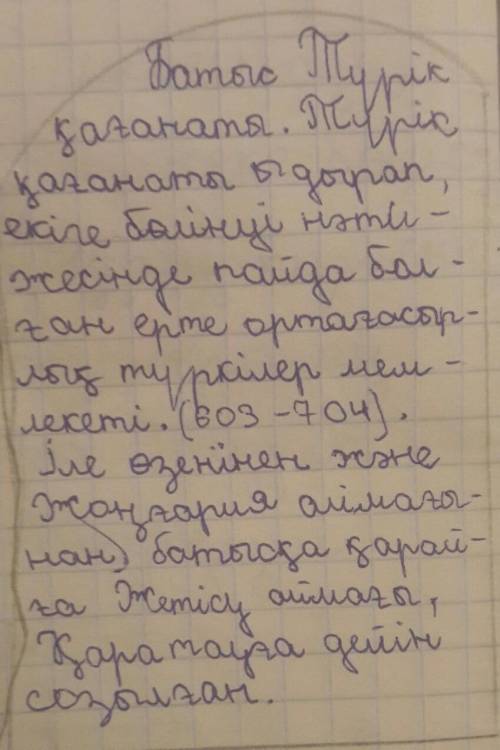 Батыс Түрік
қағанаты. Түрік
қағанаты ыдырап,
екіге бөлінуі нәти-
жесінде пайда бол-
ған ерте ортағасыр-
лық түркілер мем-
лекеті. (603-704).
Іле өзенінен және
Жоңғария аймағы-
нан, батысқа қарай-
ға Жетісу аймағы,
Қаратауға дейін
созылған.